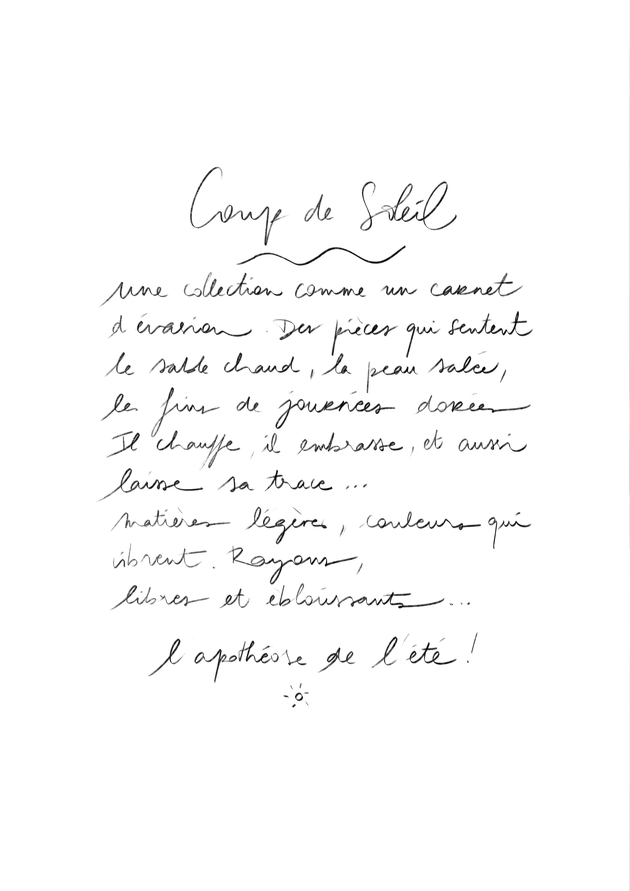 Coup de Soleil
Une collection comme un carnet
d'évasion. Des pièces qui sentent
le sable chaud, la peau salée,
les fins de journées dorées
Il chauffe, il embrasse, et aussi
laisse sa trace ...
matières légères, couleurs qui
vibrent. Rayons,
libres et éblouissants ...
l'apothéose de l'été !